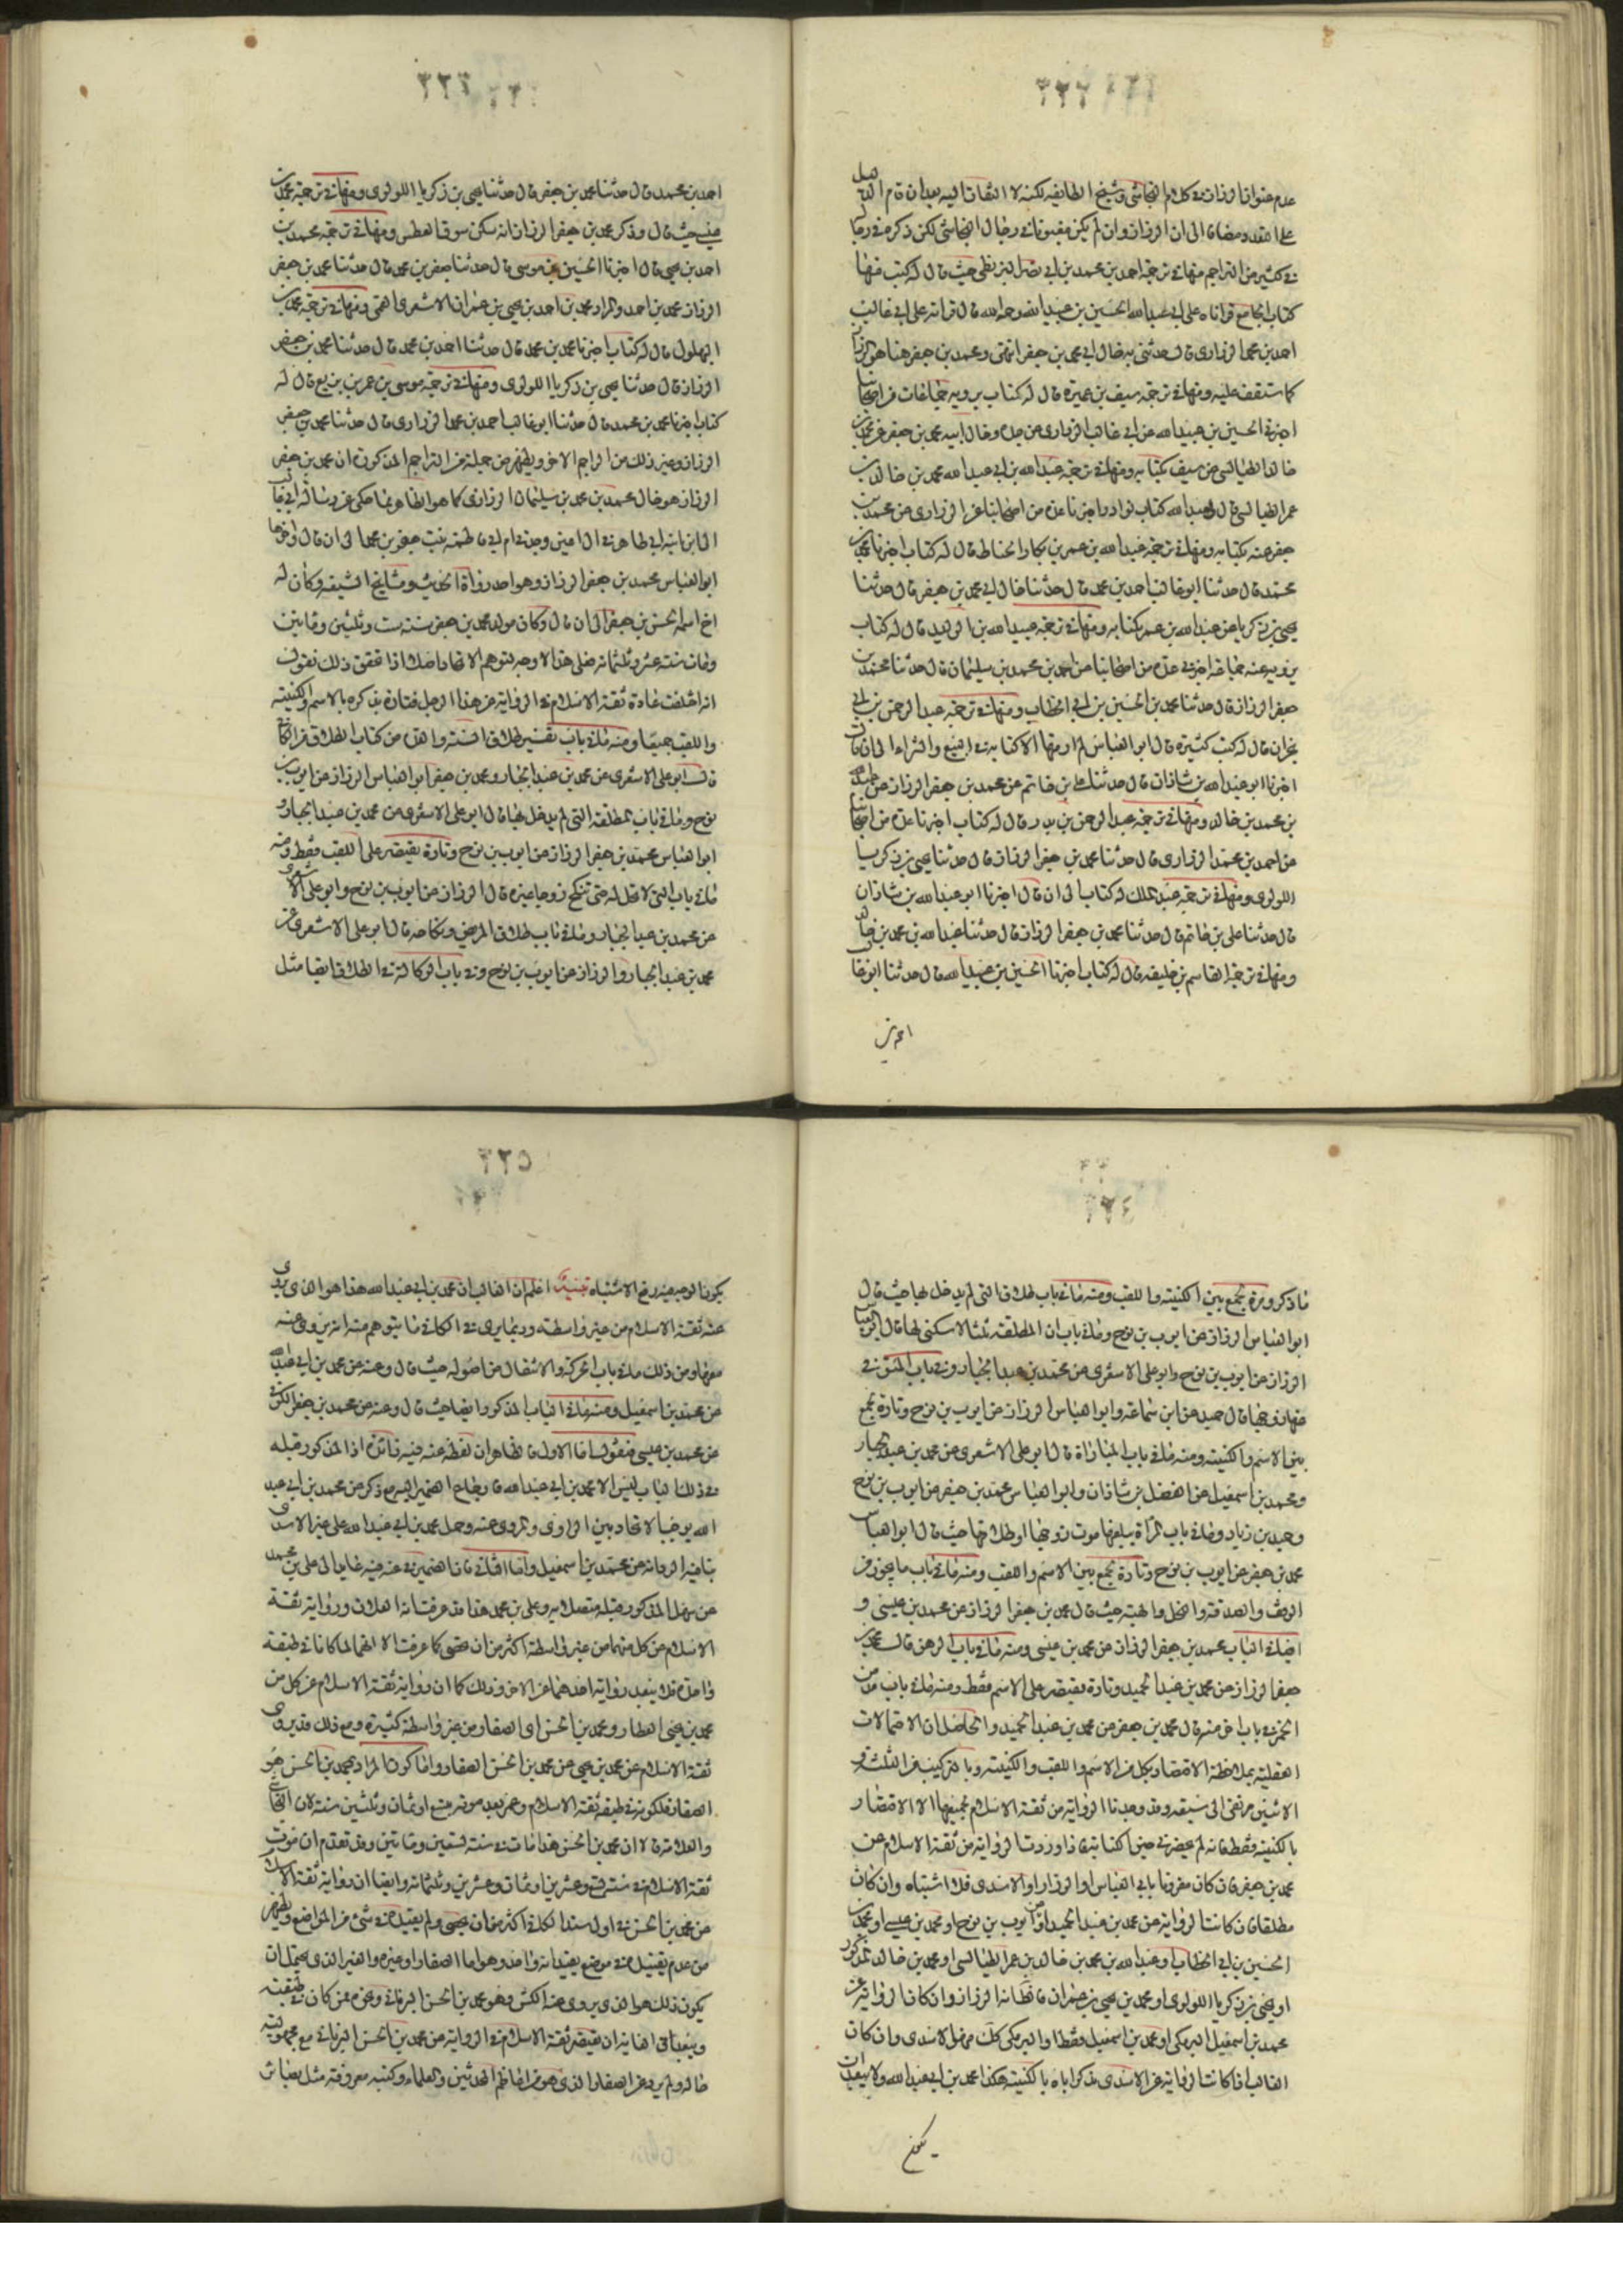 ٣٢٢
عدم عنوان الرزاز في كلام النجاشي وشيخ الطايفه لكنه لا التفات اليه بعد ان قام الدليل
على النقد ومضافا الى ان الرزاز وان لم يكن معنونا في رجال النجاشي لكن ذكره في رجا
في كثير من التراجم منها في ترجمة احمد بن محمد بن ابي نصر البزنطي حيث قال له كتب منها
كتاب الجامع قراناه على ابي عبد الله الحسين بن عبيد الله رحمه الله قال قراته على ابي غالب
احمد بن محمد الزراري قال حدثني به خال ابي محمد بن جعفر ومحمد بن جعفر هنا هو الرزاز
كما ستقف عليه ومنها في ترجمة سيف بن عميرة قال له كتاب يرويه جماعات من اصحابنا
اخبرني الحسين بن عبيد الله عن ابي غالب الزراري عن جده وخال ابيه محمد بن جعفر عن محمد بن
خالد الطيالسي عن سيف بكتابه ومنها في ترجمة عبد الله بن ابي عبد الله محمد بن خالد بن
عمر الطيالسي قال ولعبد الله كتاب نوادر اخبرنا عدة من اصحابنا عن الزراري عن محمد بن
جعفر عنه بكتابه ومنها في ترجمة عبد الله بن عمر بن بكار الحناط قال له كتاب اخبرنا محمد بن
محمد قال حدثنا ابو غالب احمد بن محمد قال حدثنا خال ابي محمد بن جعفر قال حدثنا
يحيى بن زكريا عن عبد الله بن عمر بكتابه ومنها في ترجمة عبيد الله بن الوليد قال له كتاب
يرويه عنه جماعة اخبرني عدة من اصحابنا عن احمد بن محمد بن سليمان قال حدثنا محمد بن
جعفر الرزاز قال حدثنا محمد بن الحسين بن ابي الخطاب ومنها في ترجمة عبد الرحمن بن ابي
نجران قال له كتب كثيرة قال ابو العباس لم ار منها الا كتابه في البيع والشراء الى ان قال
اخبرنا ابو عبد الله بن شاذان قال حدثنا علي بن حاتم عن محمد بن جعفر الرزاز عن عبد الله
بن محمد بن خالد ومنها في ترجمة عبد الرحمن بن بدر قال له كتاب اخبرنا عدة من اصحابنا
عن احمد بن محمد الزراري قال حدثنا محمد بن جعفر الرزاز قال حدثنا يحيى بن زكريا
اللولوى ومنها في ترجمة عبد الملك له كتاب الى ان قال اخبرنا ابو عبد الله بن شاذان
قال حدثنا علي بن حاتم قال حدثنا محمد بن جعفر الرزاز قال حدثنا عبد الله بن محمد بن خالد
ومنها في ترجمة القاسم بن خليفه قال له كتاب اخبرنا الحسين بن عبيد الله قال حدثنا ابو غالب
احمد بن
٣٢٣
احمد بن محمد قال حدثنا محمد بن جعفر قال حدثنا يحيى بن زكريا اللولوى ومنها في ترجمة محمد بن
حيث قال وذكر محمد بن جعفر الرزاز انه سكن سوق العطس ومنها في ترجمة محمد بن
احمد بن يحيى قال اخبرنا الحسين بن موسى قال حدثنا جعفر بن محمد قال حدثنا محمد بن جعفر
الرزاز محمد بن احمد والمراد محمد بن احمد بن يحيى بن عمران الاشعري القمي ومنها في ترجمة محمد بن
البهلول قال له كتاب اخبرنا محمد بن محمد قال حدثنا احمد بن محمد قال حدثنا محمد بن جعفر
الرزاز قال حدثنا يحيى بن زكريا اللولوى ومنها في ترجمة موسى بن عمر بن بزيع قال له
كتاب اخبرنا محمد بن محمد قال حدثنا ابو غالب احمد بن محمد الزراري قال حدثنا محمد بن جعفر
الرزاز وغير ذلك من التراجم الاخر ويظهر من جملة من التراجم المذكورة ان محمد بن جعفر
الرزاز هو خال محمد بن محمد بن سليمان الزراري كما هو الظاهر مما حكى عن رسالة ابي غالب
الى ابن ابنه ابي طاهر في ال اعين وجدتي ام ابي فاطمه بنت جعفر بن محمد الى ان قال واخوها
ابو العباس محمد بن جعفر الرزاز وهو احد رواة الحديث ومشايخ الشيعه وكان له
اخ اسمه الحسن بن جعفر الى ان قال وكان مولد محمد بن جعفر سنة ست وثلثين ومايتين
ومات سنة عشر وثلثمائه فعلى هذا لا وجه لتوهم الاتحاد اصلا اذا تحقق ذلك نقول
انه اختلفت عادة ثقة الاسلام في الرواية عن هذا الرجل فتارة يذكره بالاسم والكنيته
واللقب جميعا ومنه ما في باب تفسير طلاق السنة والعدة من كتاب الطلاق من الكافي
قال ابو علي الاشعري عن محمد بن عبد الجبار ومحمد بن جعفر ابو العباس الرزاز عن ايوب بن
نوح وما في باب المطلقة التي لم يدخل بها قال ابو علي الاشعري عن محمد بن عبد الجبار و
ابو العباس محمد بن جعفر الرزاز عن ايوب بن نوح وتارة يقتصر على اللقب فقط ومنه
ما في باب التي لا تحل له حتى تنكح زوجا غيره قال الرزاز عن ايوب بن نوح وابو علي الاشعري
عن محمد بن عبد الجبار وما في باب طلاق المريض ونكاحه قال ابو علي الاشعري عن
محمد بن عبد الجبار والرزاز عن ايوب بن نوح وفي باب الوكالة في الطلاق ايضا مثل
٣٢٤
ما ذكر ومرة يجمع بين الكنيته واللقب ومنه ما في باب طلاق التي لم يدخل بها حيث قال
ابو العباس الرزاز عن ايوب بن نوح وما في باب ان المطلقة ثلثا لا سكنى لها قال ابو العباس
الرزاز عن ايوب بن نوح وابو علي الاشعري عن محمد بن عبد الجبار وفي باب المتوفى
عنها زوجها قال حميد عن ابن سماعة وابو العباس الرزاز عن ايوب بن نوح وتارة يجمع
بين الاسم والكنيته ومنه ما في باب المباراة قال ابو علي الاشعري عن محمد بن عبد الجبار
ومحمد بن اسمعيل عن الفضل بن شاذان وابو العباس محمد بن جعفر عن ايوب بن نوح
وحميد بن زياد وما في باب المرأة يبلغها موت زوجها او طلاقها حيث قال ابو العباس
محمد بن جعفر عن ايوب بن نوح وتارة يجمع بين الاسم واللقب ومنه ما في باب ما يجوز من
الوقف والصدقة والنحل والهبة حيث قال محمد بن جعفر الرزاز عن محمد بن عيسى و
ايضا في الباب محمد بن جعفر الرزاز عن محمد بن عيسى ومنه ما في باب الرهن قال محمد بن
جعفر الرزاز عن محمد بن عبد الحميد وتارة يقتصر على الاسم فقط ومنه ما في باب مدمن
الخمر في باب اخر منه قال محمد بن جعفر عن محمد بن عبد الحميد والحاصل ان الاحتمالات
العقلية بملاحظة الاقتصار بكل من الاسم واللقب والكنيته وبالتركيب من الثلثة و
الاثنين ترتقى الى سبعة وقد وجدنا الرواية من ثقة الاسلام بجميعها الا الاقتصار
بالكنيته فقط فانه لم يحضرني حين كتابته فاذا وردت الرواية من ثقة الاسلام عن
محمد بن جعفر فان كان مقرونا بابي العباس او الرزاز او الاسدى فلا اشتباه وان كان
مطلقا فان كانت الرواية عن محمد بن عبد الحميد او عن ايوب بن نوح او محمد بن عيسى او محمد بن
الحسين بن ابي الخطاب او عبد الله بن محمد بن خالد بن عمر الطيالسي او محمد بن خالد المذكور
او يحيى بن زكريا اللولوى او محمد بن يحيى بن عمران فالظاهر انه الرزاز وان كان الرواية عن
محمد بن اسمعيل البرمكي او محمد بن اسمعيل فقط او البرمكي كك فهو الاسدى وان كان
الغالب اذا كانت الرواية عن الاسدى يذكر اباه بالكنيته هكذا محمد بن ابي عبد الله ولا يبعد ان
يكون
٣٢٥
يكون الوجه فيه رفع الاشتباه تنبيه اعلم ان الغالب ان محمد بن ابي عبد الله هذا هو الذى يروى
عنه ثقة الاسلام من غير واسطة وربما يرى في الكافي ما يتوهم منه انه يروى عنه
معها ومن ذلك ما في باب الحركة والانتقال من اصوله حيث قال وعنه عن محمد بن ابي عبد الله
عن محمد بن اسمعيل ومنه ما في الباب المذكور ايضا حيث قال وعنه عن محمد بن جعفر الكوفي
عن محمد بن عيسى فنقول اما الاول فالظاهر ان لفظة عنه فيه زائدة اذ المذكور قبله
في ذلك الباب ليس الا محمد بن ابي عبد الله فارجاع الضمير اليه مع ذكر عن محمد بن ابي عبد
الله يوجب الاتحاد بين الراوى والمروى عنه وحمل محمد بن ابي عبد الله على غير الاسدى
ينافيه الرواية عن محمد بن اسمعيل واما الثاني فان الضمير في عنه فيه عايد الى علي بن محمد
عن سهل المذكور قبله متصلا به وعلي بن محمد هذا قد عرفت انه العلان ورواية ثقة
الاسلام عن كل منهما من غير واسطة اكثر من ان يحصى كما عرفت الا انهما لما كانا في طبقة
واحدة فلا يبعد رواية احدهما عن الاخر وذلك كما ان رواية ثقة الاسلام عن كل من
محمد بن يحيى العطار ومحمد بن الحسن اى الصفار من غير واسطة كثيرة ومع ذلك قد يروى
ثقة الاسلام عن محمد بن يحيى عن محمد بن الحسن الصفار واما كون المراد بمحمد بن الحسن هو
الصفار فلكونه في طبقة ثقة الاسلام وعمر بعد موته بضع او ثمان وثلثين سنة لان النجاشي
والعلامة قالا ان محمد بن الحسن هذا مات في سنة تسعين ومايتين وقد تقدم ان موت
ثقة الاسلام في سنة تسع وعشرين او ثمان وعشرين وثلثمائه وايضا ان رواية ثقة الاسلام
عن محمد بن الحسن في اول سند الكافي اكثر من ان يحصى ولم يقيده في شئ من المواضع ويظهر
من عدم تقييده في موضع بقيد انه واحد وهو اما الصفار او غيره والغير الذى يحتمل ان
يكون ذلك هو الذى يروى عنه الكشي وهو محمد بن الحسن البرناني ونحوه ممن كان في طبقته
ويبعد في الغاية ان يقتصر ثقة الاسلام في الرواية عن محمد بن الحسن البرناني مع مجهولية
حاله ولم يرو عن الصفار الذى هو من اعاظم المحدثين والعلماء وكتبه معروفة مثل بصائر